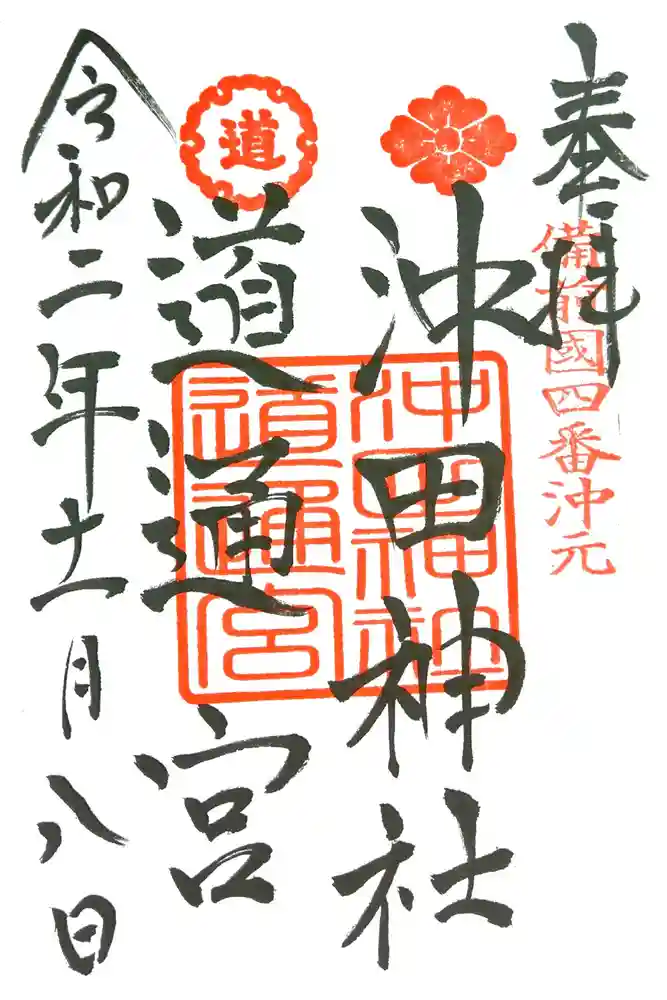 奉拝
備前國四番沖元
沖田神社
道通宮
令和二年十一月八日
道
沖田神社
道通宮